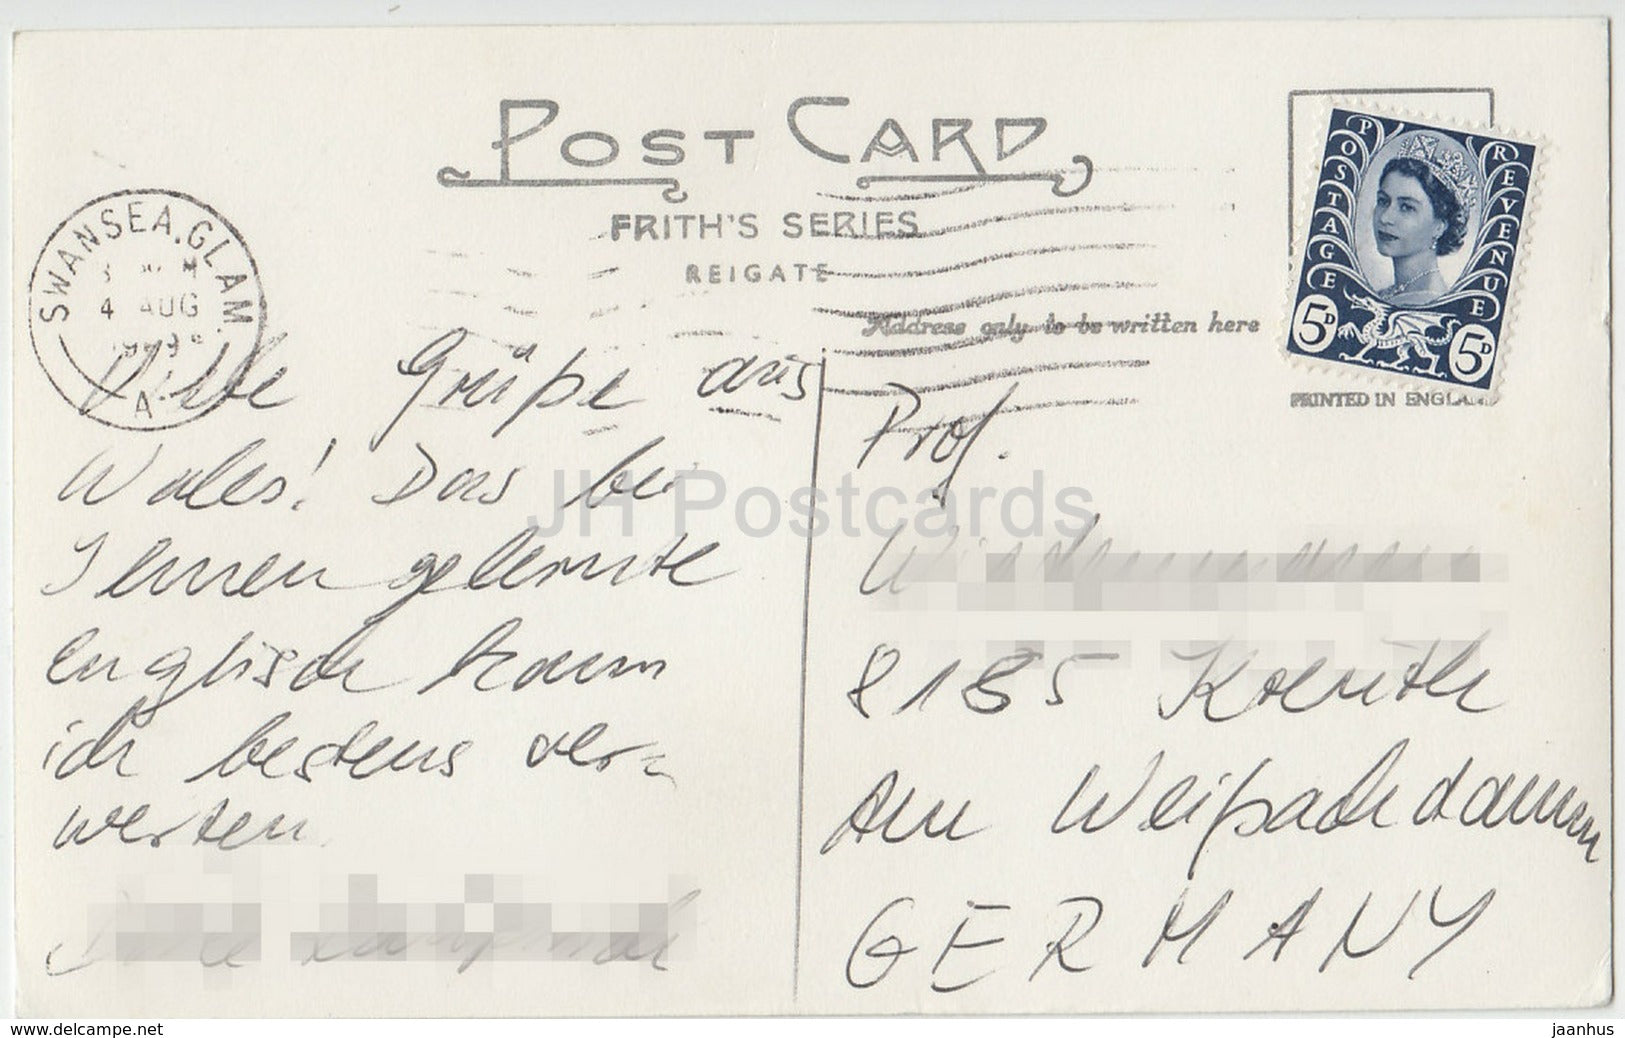 POST CARD
FRITH'S SERIES
REIGATE
Address only to be written here
POSTAGE REVENUE
5D 5D
PRINTED IN ENGLAND
SWANSEA.GLAM.
4 AUG
A
Viele Grüße aus
Wales! Das bei
Ihnen gelernte
Englisch kann
ich bestens ver-
werten.
Prof.
8185 Kreuth
Am Weißachdamm
GERMANY
JH Postcards
www.delcampe.net
jaanhus